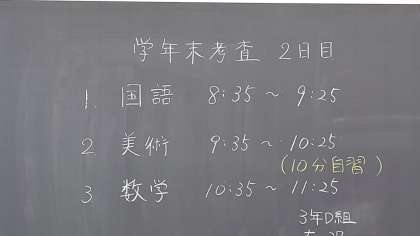 学年末考査 2日目
1. 国語 8:35 ~ 9:25
2 美術 9:35 ~ 10:25
(10分自習)
3 数学 10:35 ~ 11:25
3年D組